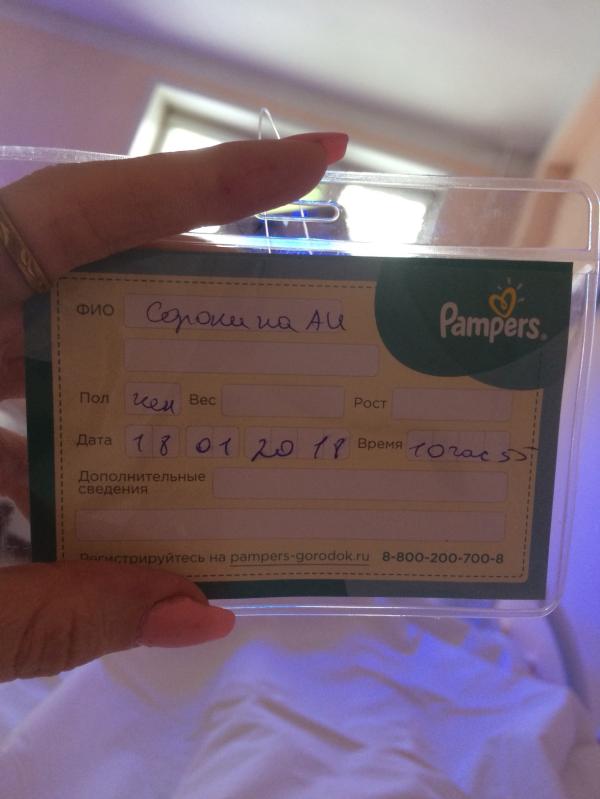 Pampers®
ФИО Сорокина АИ
Пол жен Вес Рост
Дата 18 01 2018 Время 10 час 55
Дополнительные
сведения
Регистрируйтесь на pampers-gorodok.ru 8-800-200-700-8